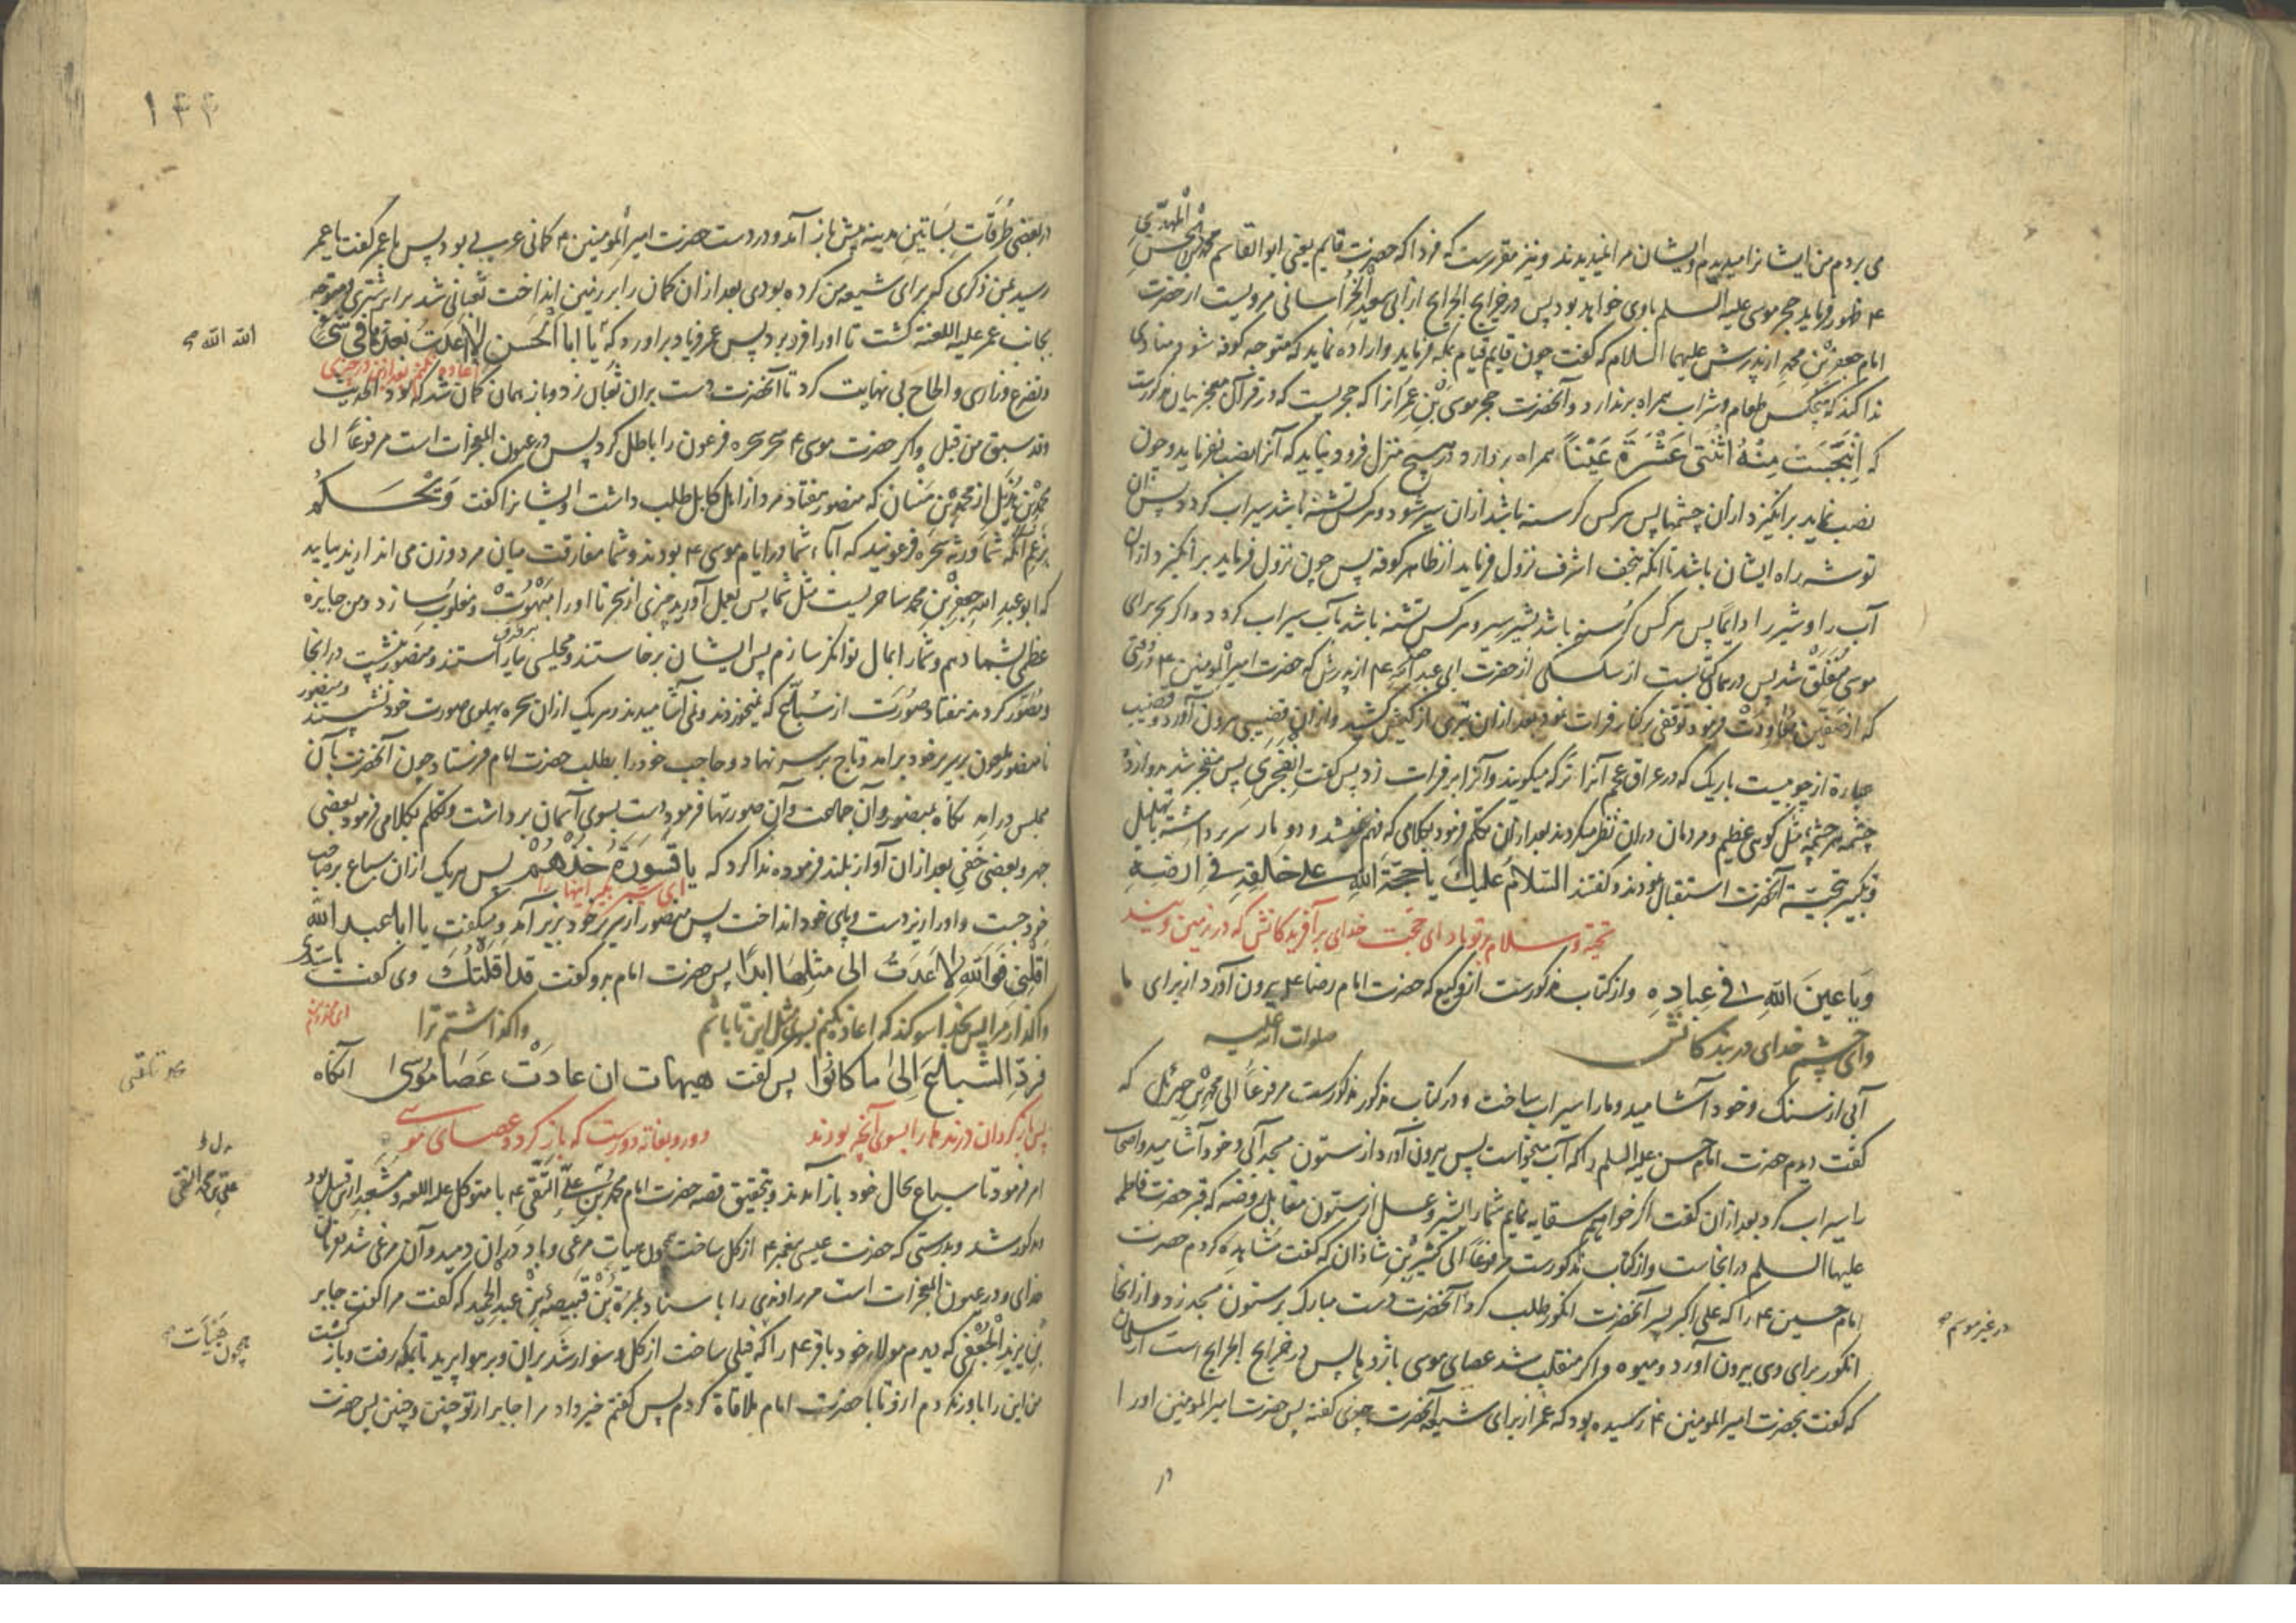 المهدی
می بردم من ایشانرا میدیدم و ایشان مرا نمیدیدند و نیز مقررست که فردا که حضرت قایم یعنی ابو القاسم محمد بن الحسن
۴ ظهور فرماید حجر موسی علیه السلم با وی خواهد بود پس در خرایج الجرایح از ابی سعید الخراسانی مرویست از حضرت
امام جعفر بن محمد از پدرش علیهما السلام که گفت چون قایم قیام بمکه فرماید و اراده نماید که متوجه کوفه شود منادی
ندا کند که هیچکس طعام و شراب همراه برندارد و آنحضرت حجر موسی بن عمرانرا که حجریست که در قرآن معجز بیان مذکورست
که انبجست منه اثنتی عشرة عینا همراه بردارد و در هیچ منزل فرود نیاید که آنرا نصب نفرماید و چون
نصب نماید برانگیزد ازان چشمها پس هر کس گرسنه باشد ازان سیر شود و هر کس تشنه باشد سیراب گردد پس آن
توشه راه ایشان باشد تا آنکه بنجف اشرف نزول فرماید از ظاهر کوفه پس چون نزول فرماید برانگیزد ازان
آب را و شیر را دایما پس هر کس گرسنه باشد بشیر سیر و هر کس تشنه باشد بآب سیراب گردد و اگر بحر برای
موسی منفلق شد پس در همان کتابست از سکنی از حضرت ابی عبد الله ۴ از پدرش که حضرت امیر المومنین ۴ وقتی
که از صفین معاودت فرمود توقفی بر کنار فرات نمود بعد ازان تیری از کیش کشید و ازان قضیبی بیرون آورد و قضیب
عبارة از چوبیست باریک که در عراق عجم آنرا ترکه میگویند و آنرا بر فرات زد پس گفت انفجری پس منفجر شد دوازده
چشمه هر چشمه مثل کوهی عظیم و مردمان دران نظر میکردند بعد ازان تکلم فرمود بکلامی که فهم نمیشد و دو مار سر برداشته بتهلیل
و تکبیر تحیة آنحضرت استقبال نمودند و گفتند السلام علیک یا حجة الله علی خالقه فی ارضه
تحیة و سلام بر تو باد ای حجت خدای بر آفریدکانش که در زمین ویند
و یا عین الله فی عباده و از کتاب مذکورست از وکیع که حضرت امام رضا ۴ بیرون آورد از برای ما
و ای چشم خدای در بندکانش
صلوات الله علیه
آبی از سنگ و خود آشامید و ما را سیراب ساخت و در کتاب مذکور مذکورست مرفوعا الی محمد بن جبرئیل که
گفت دیدم حضرت امام حسن علیه السلم را که آب میخواست پس بیرون آورد از ستون مسجد آبی و خود آشامید و اصحاب
را سیراب کرد بعد ازان گفت اگر خواهیم سقایه نمایم شما را بشیر و عسل از ستون مقابل روضه که قبر حضرت فاطمه
علیها السلم در انجاست و از کتاب مذکورست مرفوعا الی کثیر بن شاذان که گفت مشاهده کردم حضرت
امام حسین ۴ را که علی اکبر پسر آنحضرت انگور طلب کرد آنحضرت دست مبارک بر ستون مسجد زد و از انجا
در غیر موسم
انگور برای وی بیرون آورد و میوه و اگر منقلب شد عصای موسی باژدها پس در خرایج الجرایح است از سلمان
که گفت بحضرت امیر المومنین ۴ رسیده بود که عمر از برای شیعه آنحضرت چیزی گفته پس حضرت امیر المومنین او را
در
۱۴۴
در بعضی طرقات بساتین مدینه پیش باز آمد و در دست حضرت امیر المومنین ۴ کمانی عربی بود پس با عمر گفت یا عمر
رسید بمن ذکری که برای شیعه من کرده بودی بعد ازان کمان را بر زمین انداخت ثعبانی شد برابر شتری و متوجه
بجانب عمر علیه اللعنة گشت تا او را فرو برد پس عمر فریاد برآورد که یا ابا الحسن لا عدت بعدها فی شی
الله الله
اعاده نکنم بعد ازین در چیزی
و تضرع و زاری و الحاح بی نهایت کرد تا آنحضرت دست بران ثعبان زد و باز همان کمان شد که بود الحدیث
و قد سبق من قبل و اگر حضرت موسی ۴ سحر سحره فرعون را باطل کرد پس در عیون المعجزات است مرفوعا الی
محمد بن هذیل از محمد بن سنان که منصور هفتاد مرد از اهل کابل طلب داشت و ایشانرا گفت ویحکم
بزعم آنکه شما ورثه سحره فرعونید که آباء شما در ایام موسی ۴ بودند و شما مفارقت میان مرد و زن می اندازید بیایید
که ابو عبد الله جعفر بن محمد ساحریست مثل شما پس بعمل آورید چیزی از سحر تا او را مبهوت و مغلوب سازد و من جایزه
عظمی بشما دهم و شما را بمال توانگر سازم پس ایشان برخاستند و مجلسی بیاراستند و منصور بنشست در انجا
و مصور کردند هفتاد صورت از سباع که نمیخوردند و نمی آشامیدند و هر یک ازان سحره پهلوی صورت خود بنشستند
و منصور
تا منصور ملعون بر سریر خود برآمد و تاج بر سر نهاد و حاجب خود را بطلب حضرت امام فرستاد چون آنحضرت بآن
مجلس درآمد نگاه بمنصور و آن جماعت و آن صورتها فرمود دست بسوی آسمان برداشت و تکلم بکلامی فرمود بعضی
جهر و بعضی خفی بعد ازان آواز بلند فرموده ندا کرد که یا قسورة خذهم پس هر یک ازان سباع بر صاحب
ای شیر بگیر اینها را
خود جست و او را از دست و پای خود انداخت پس منصور از سریر خود بزیر آمد و میگفت یا ابا عبد الله
اقلنی فو الله لا عدت الی مثلها ابدا پس حضرت امام برو گفت قد اقلتک وی گفت یا سیدی
واگذار مرا پس بخدا سوگند که اعاده نکنم بسوی مثل این تا باشم
واگذاشتم ترا
فرد السباع الی ما کانوا پس گفت هیهات ان عادت عصا موسی آنگاه
پس بازگردان درندها را بسوی آنچه بودند
دور و بغایة دورست که باز گردد عصای موسی
امر فرمود تا سباع بحال خود باز آمدند و بتحقیق قصه حضرت امام محمد بن علی التقی ۴ با متوکل علیه اللعنه و مشعبد ازین قبیل بود
علی بن محمد النقی
مذکور شد و بدرستی که حضرت عیسی پیغمبر ۴ از گل ساخت چون هیات مرغی و باد دران دمید و آن مرغی شد بفرمان
خدای و در عیون المعجزات است مر راوندی را باسناد بمرة بن قبیصة بن عبد الحمید که گفت مرا گفت جابر
بن یزید الجعفی که دیدم مولای خود باقر ۴ را که فیلی ساخت از گل و سوار شد بران و بر هوا پرید تا بمکه رفت و بازگشت
من این را باور نکردم ازو تا با حضرت امام ملاقاة کردم پس گفتم خبر داد مرا جابر از تو چنین و چنین پس حضرت